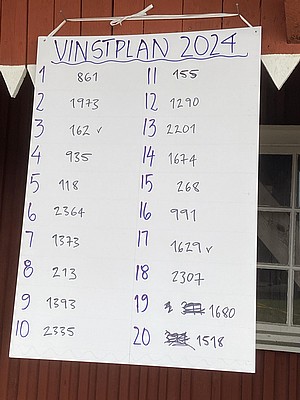 VINSTPLAN 2024
1 861
2 1973
3 162 ✓
4 935
5 118
6 2364
7 1373
8 213
9 1393
10 2335
11 155
12 1290
13 2201
14 1674
15 268
16 991
17 1629 ✓
18 2307
19 1680
20 1518